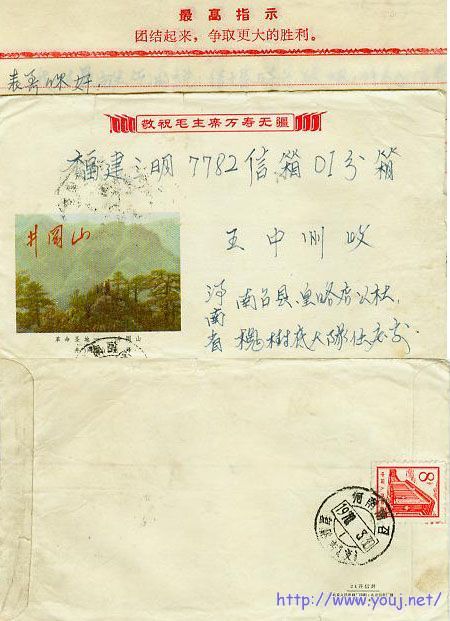 最高指示
团结起来，争取更大的胜利。
表哥你好，
敬祝毛主席万寿无疆
福建三明7782信箱01分箱
王中洲收
井冈山
河南省南召县皇路店公社
槐树底大队任家沟
革命圣地 井冈山
8
河南南召
1970
http://www.youj.net/